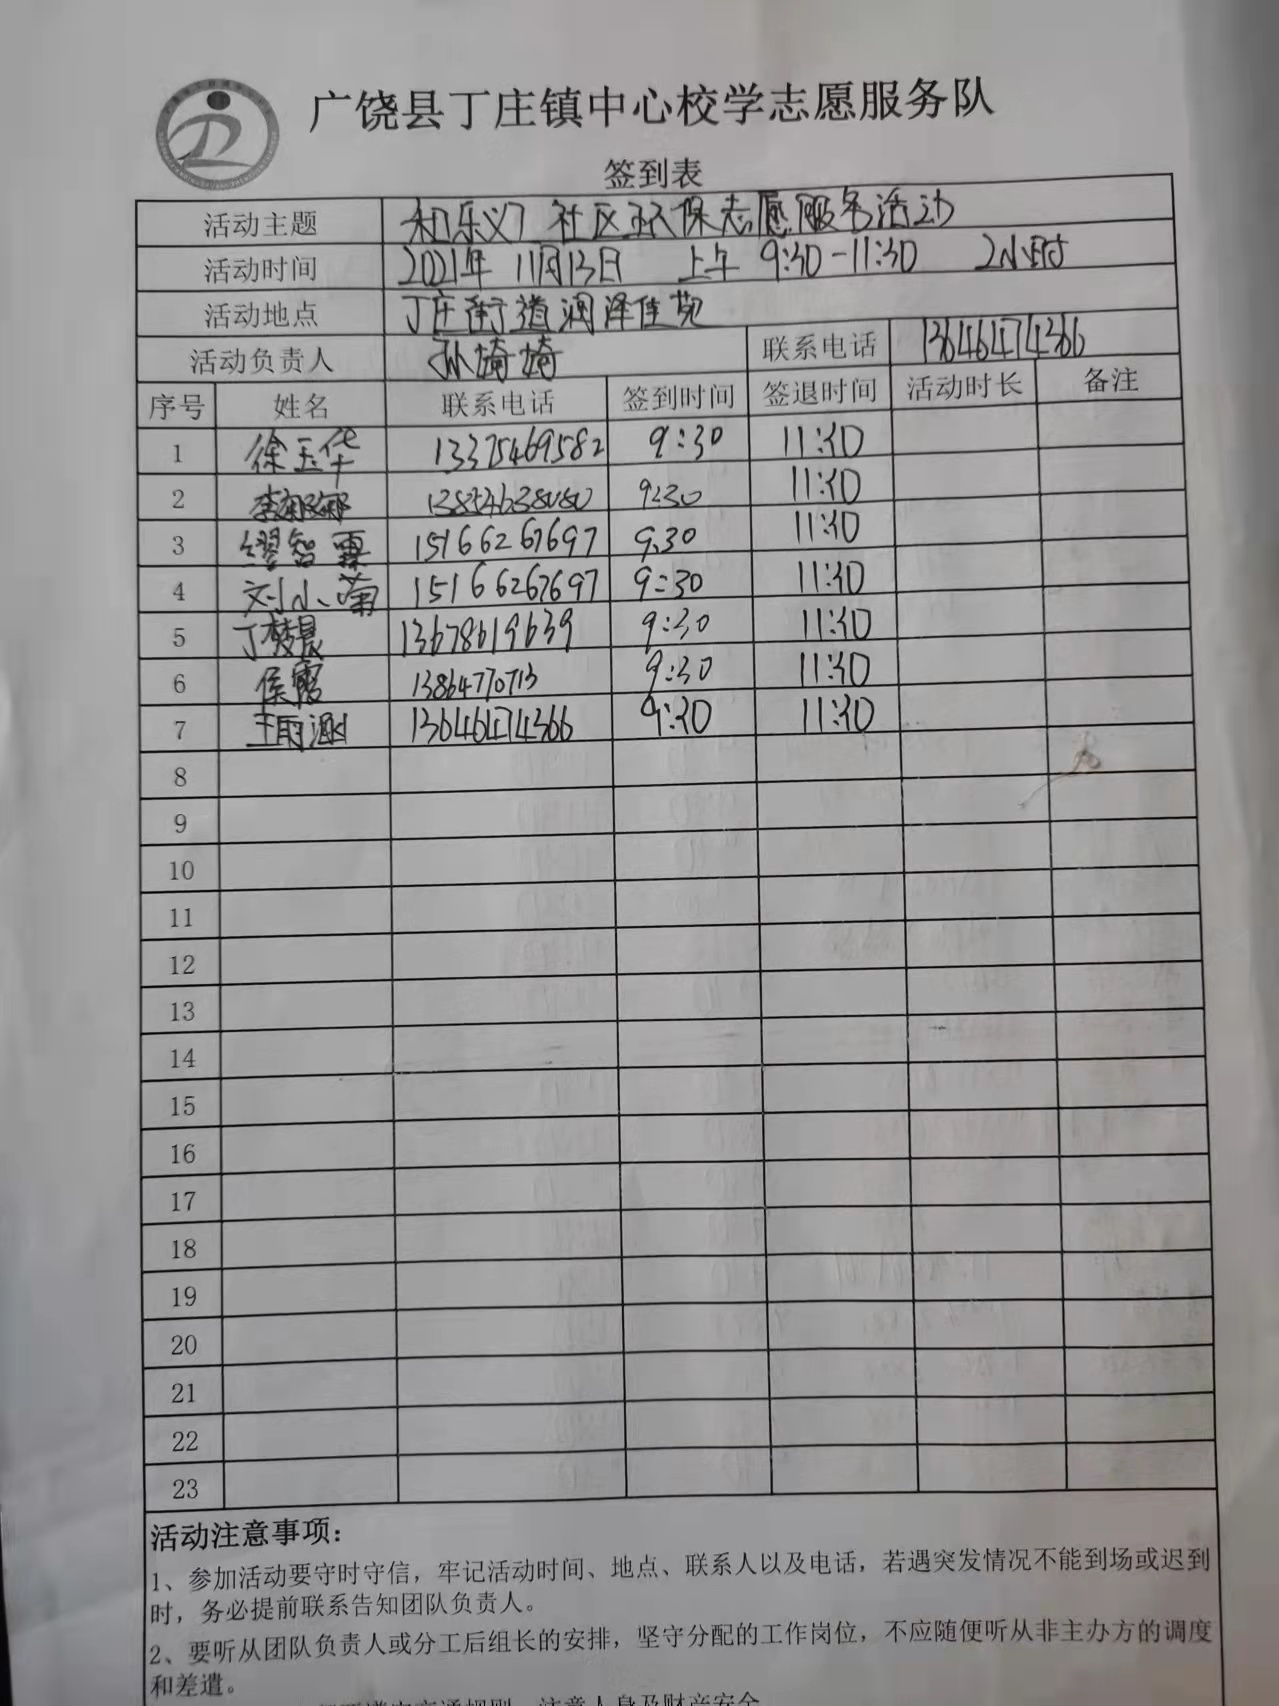 广饶县丁庄镇中心校学志愿服务队
签到表
活动主题 和乐义门社区环保志愿服务活动
活动时间 2021年 11月13日 上午 9:30-11:30 2小时
活动地点 丁庄街道润泽佳苑
活动负责人 孙婍婍 联系电话 13646474366
序号 姓名 联系电话 签到时间 签退时间 活动时长 备注
1 徐玉华 13375469582 9:30 11:30
2 李娜娜 13854638080 9:30 11:30
3 缪智霖 15166267697 9:30 11:30
4 刘小菊 15166267697 9:30 11:30
5 丁梦晨 13678619639 9:30 11:30
6 侯雪 13864770713 9:30 11:30
7 王雨涵 13646474366 9:30 11:30
8
9
10
11
12
13
14
15
16
17
18
19
20
21
22
23
活动注意事项：
1、参加活动要守时守信，牢记活动时间、地点、联系人以及电话，若遇突发情况不能到场或迟到
时，务必提前联系告知团队负责人。
2、要听从团队负责人或分工后组长的安排，坚守分配的工作岗位，不应随便听从非主办方的调度
和差遣。
交通规则，注意人身及财产安全